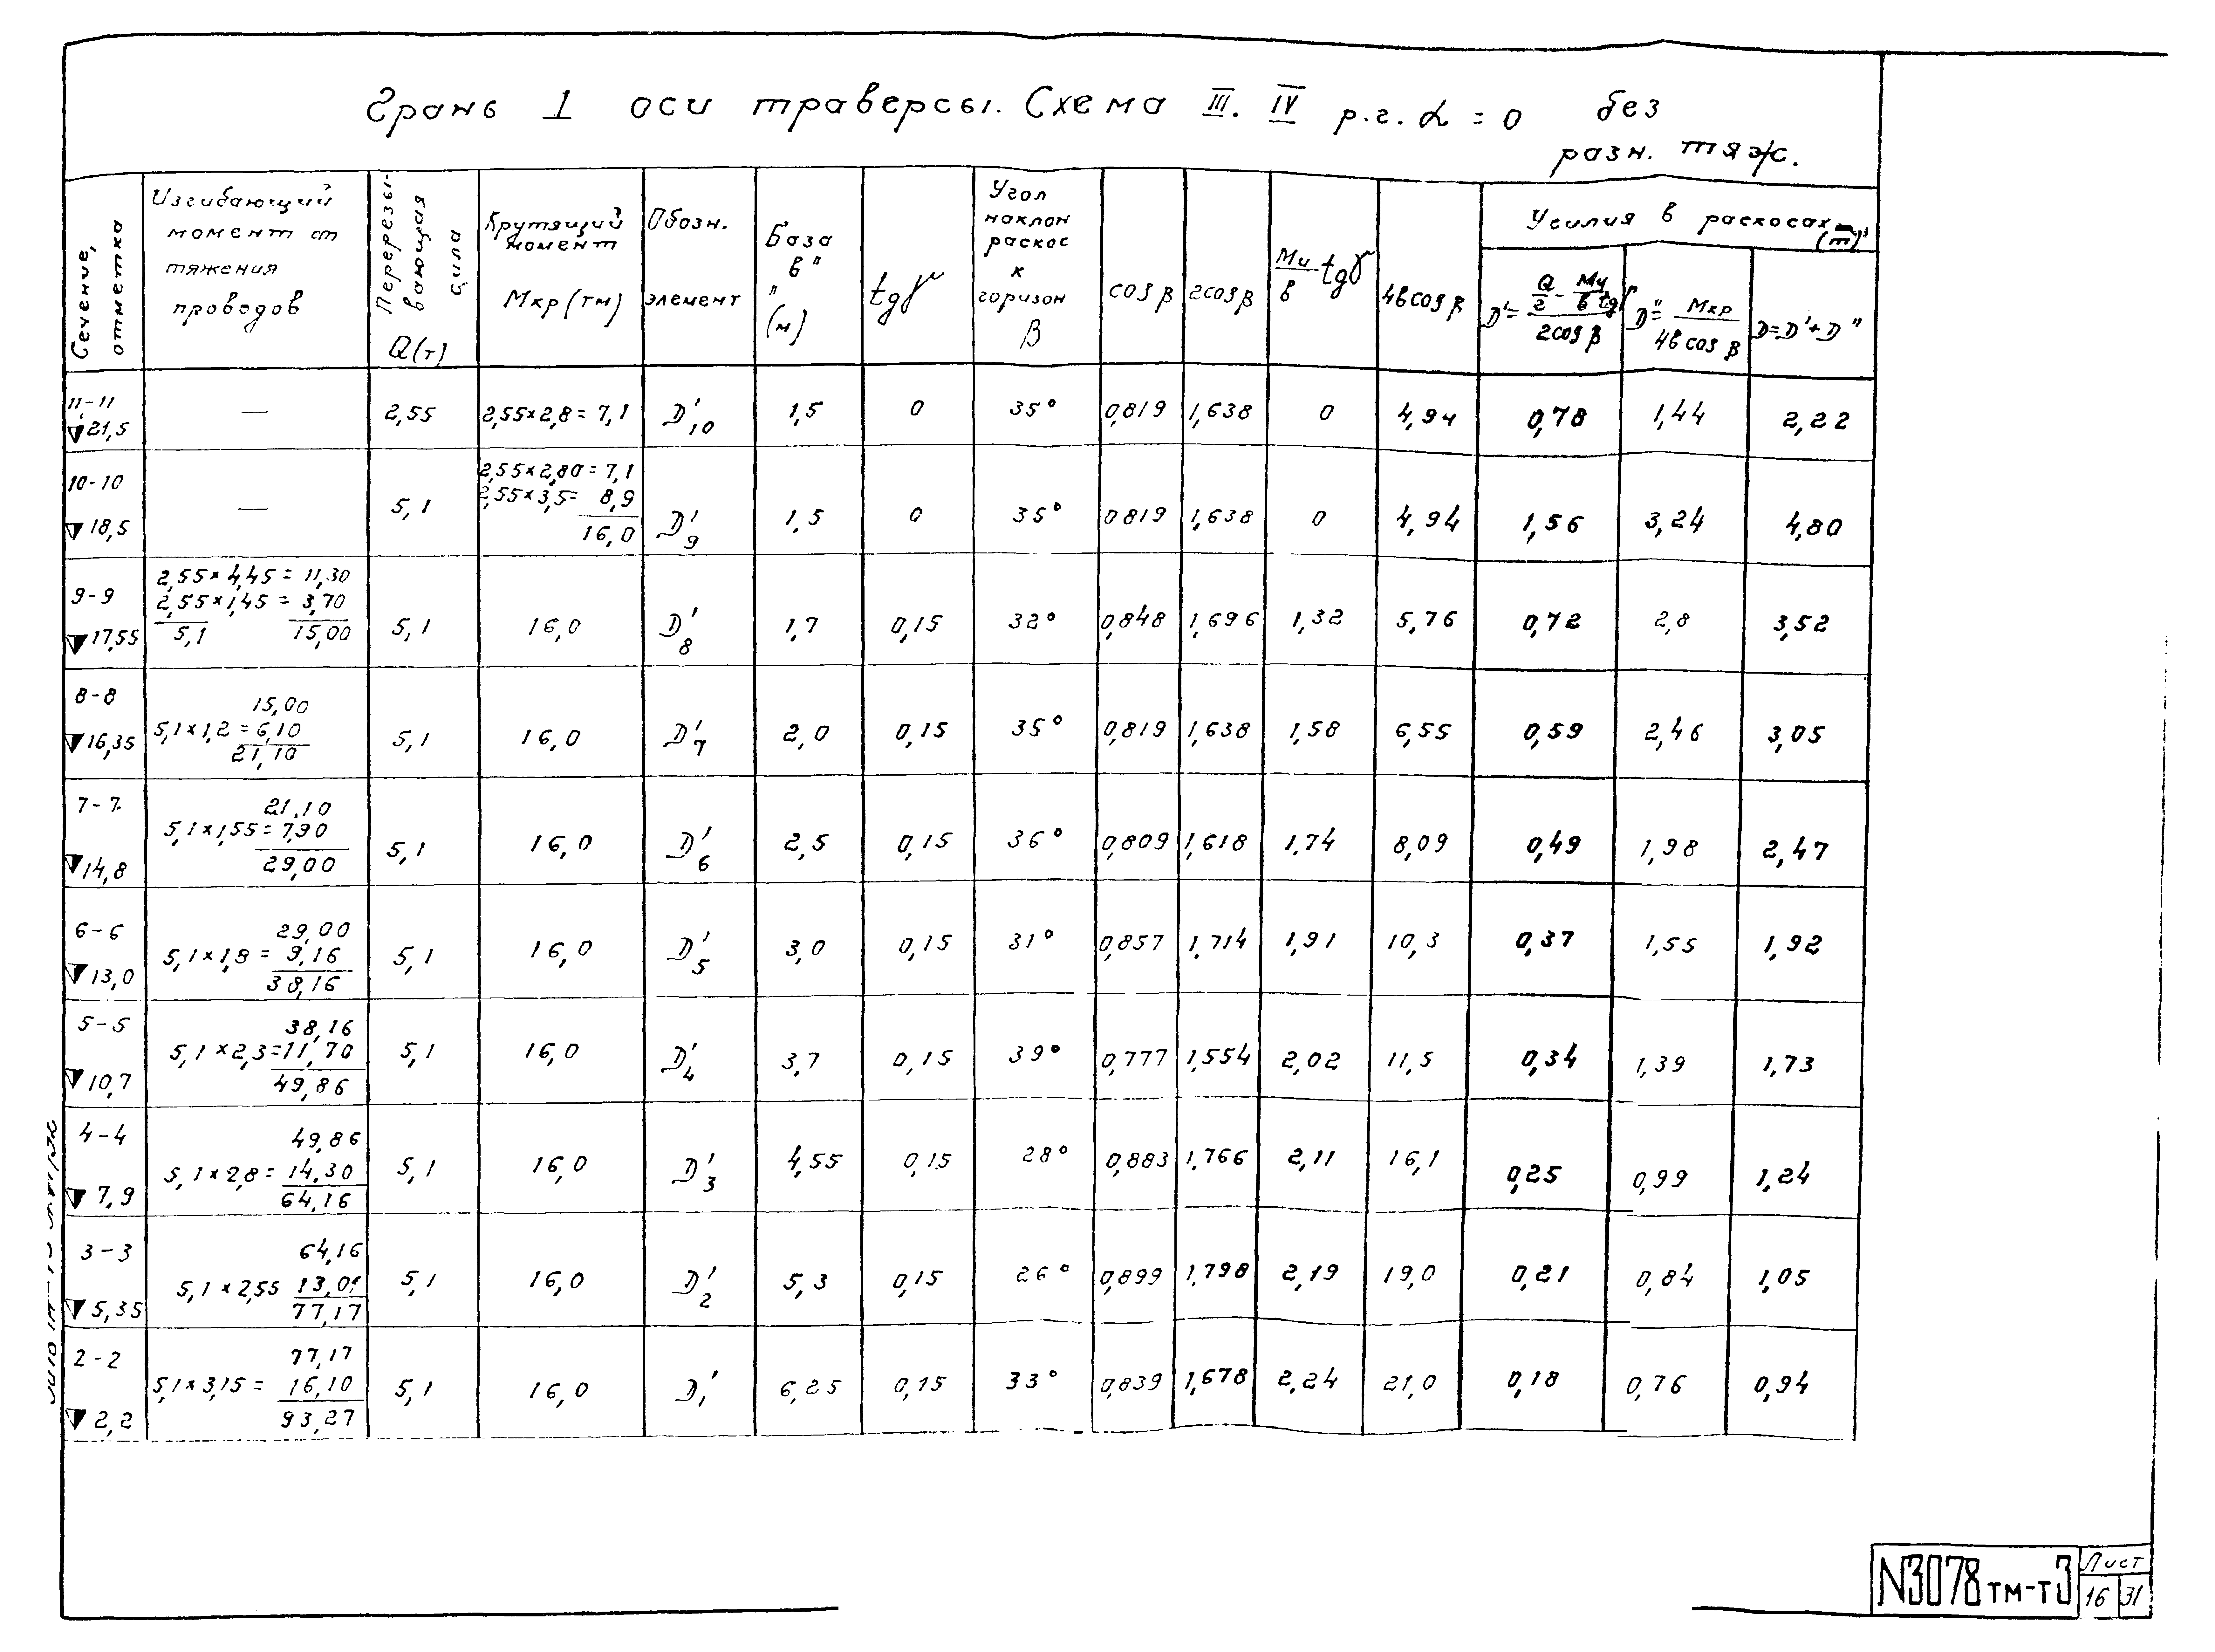 Грань ⊥ оси траверсы. Схема III. IV р.г. α = 0 без
разн. тяж.
Сечение, отметка
Изгибающий момент от тяжения проводов
Перерезывающая сила Q(т)
Крутящий момент Мкр (тм)
Обозн. элемент
База "в" (м)
tgγ
Угол наклон раскос к горизон β
cosβ
2cosβ
Mи/в tgγ
4вcosβ
Усилия в раскосах (т)
D' = (Q/2 - Mи/в tgγ) / 2cosβ
D" = Мкр / 4вcosβ
D=D'+D"
11-11 ▽21,5 — 2,55 2,55×2,8=7,1 D'10 1,5 0 35° 0,819 1,638 0 4,94 0,78 1,44 2,22
10-10 ▽18,5 — 5,1 2,55×2,80=7,1 2,55×3,5=8,9 16,0 D'9 1,5 0 35° 0,819 1,638 0 4,94 1,56 3,24 4,80
9-9 ▽17,55 2,55×4,45=11,30 2,55×1,45=3,70 5,1 15,00 5,1 16,0 D'8 1,7 0,15 32° 0,848 1,696 1,32 5,76 0,72 2,8 3,52
8-8 ▽16,35 15,00 5,1×1,2=6,10 21,10 5,1 16,0 D'7 2,0 0,15 35° 0,819 1,638 1,58 6,55 0,59 2,46 3,05
7-7 ▽14,8 21,10 5,1×1,55=7,90 29,00 5,1 16,0 D'6 2,5 0,15 36° 0,809 1,618 1,74 8,09 0,49 1,98 2,47
6-6 ▽13,0 29,00 5,1×1,8=9,16 38,16 5,1 16,0 D'5 3,0 0,15 31° 0,857 1,714 1,91 10,3 0,37 1,55 1,92
5-5 ▽10,7 38,16 5,1×2,3=11,70 49,86 5,1 16,0 D'4 3,7 0,15 39° 0,777 1,554 2,02 11,5 0,34 1,39 1,73
4-4 ▽7,9 49,86 5,1×2,8=14,30 64,16 5,1 16,0 D'3 4,55 0,15 28° 0,883 1,766 2,11 16,1 0,25 0,99 1,24
3-3 ▽5,35 64,16 5,1×2,55 13,01 77,17 5,1 16,0 D'2 5,3 0,15 26° 0,899 1,798 2,19 19,0 0,21 0,84 1,05
2-2 ▽2,2 77,17 5,1×3,15= 16,10 93,27 5,1 16,0 D'1 6,25 0,15 33° 0,839 1,678 2,24 21,0 0,18 0,76 0,94
N3078тм-т3
Лист
16 31